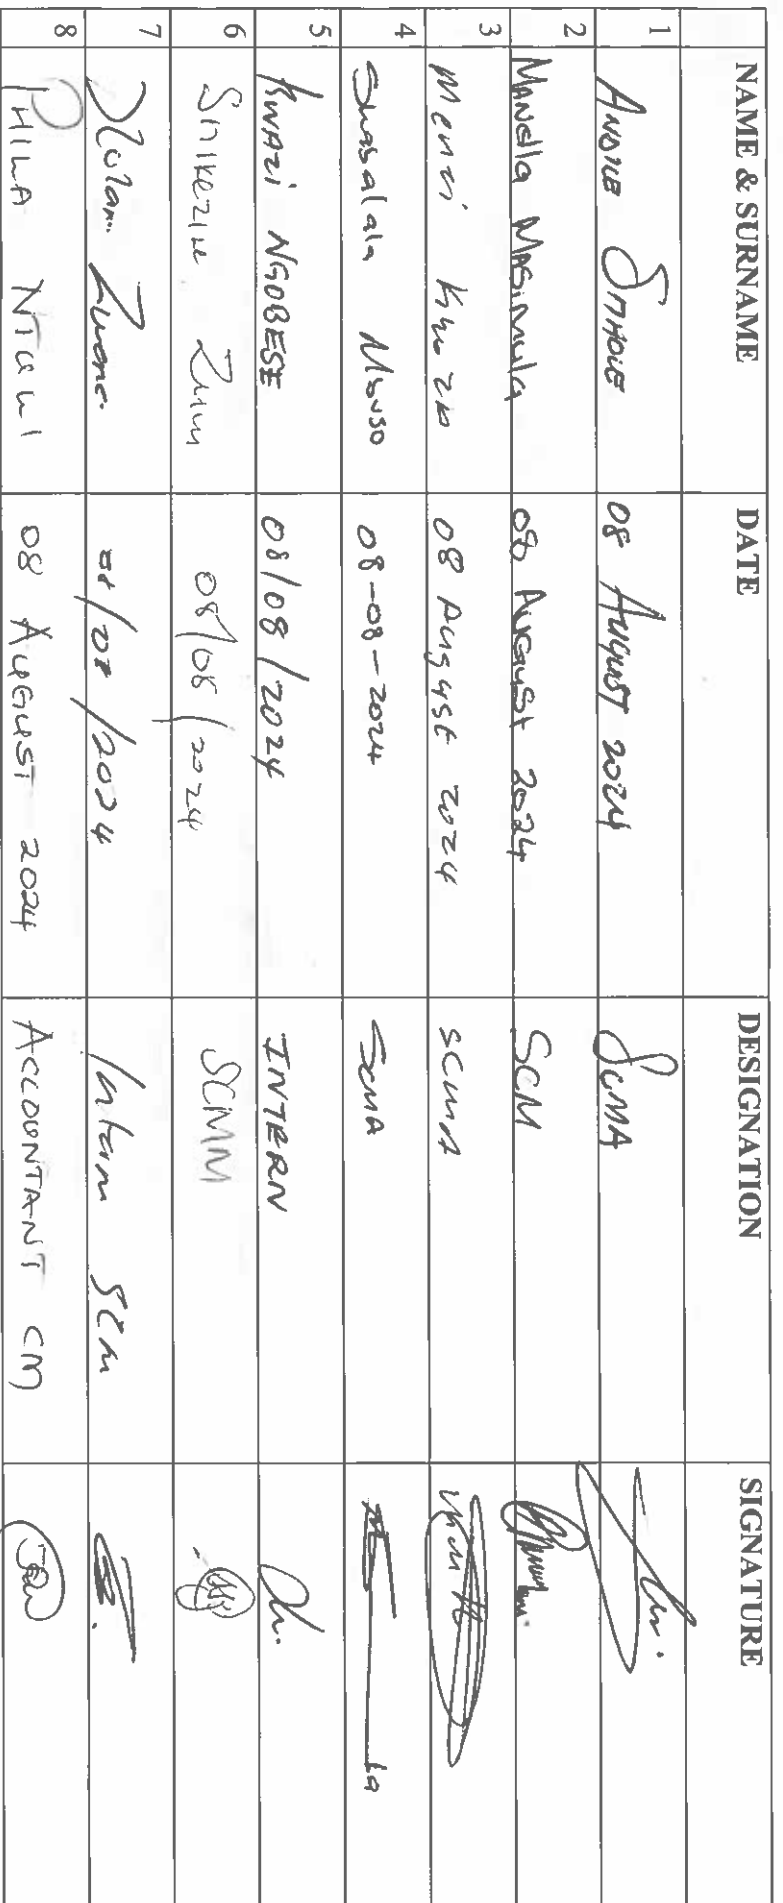 NAME & SURNAME DATE DESIGNATION SIGNATURE
1 ANDILE SITHOLE 08 August 2024 SCMA
2 Mandla Masimula 08 August 2024 SCM
3 Menzi Khoza 08 August 2024 SCMA
4 08-08-2024 SCMA
5 KWAZI NGOBESE 08/08/2024 INTERN
6 08/08/2024 SCMM
7 08/08/2024 Intern SCM
8 PHILA NTULI 08 AUGUST 2024 ACCOUNTANT CM